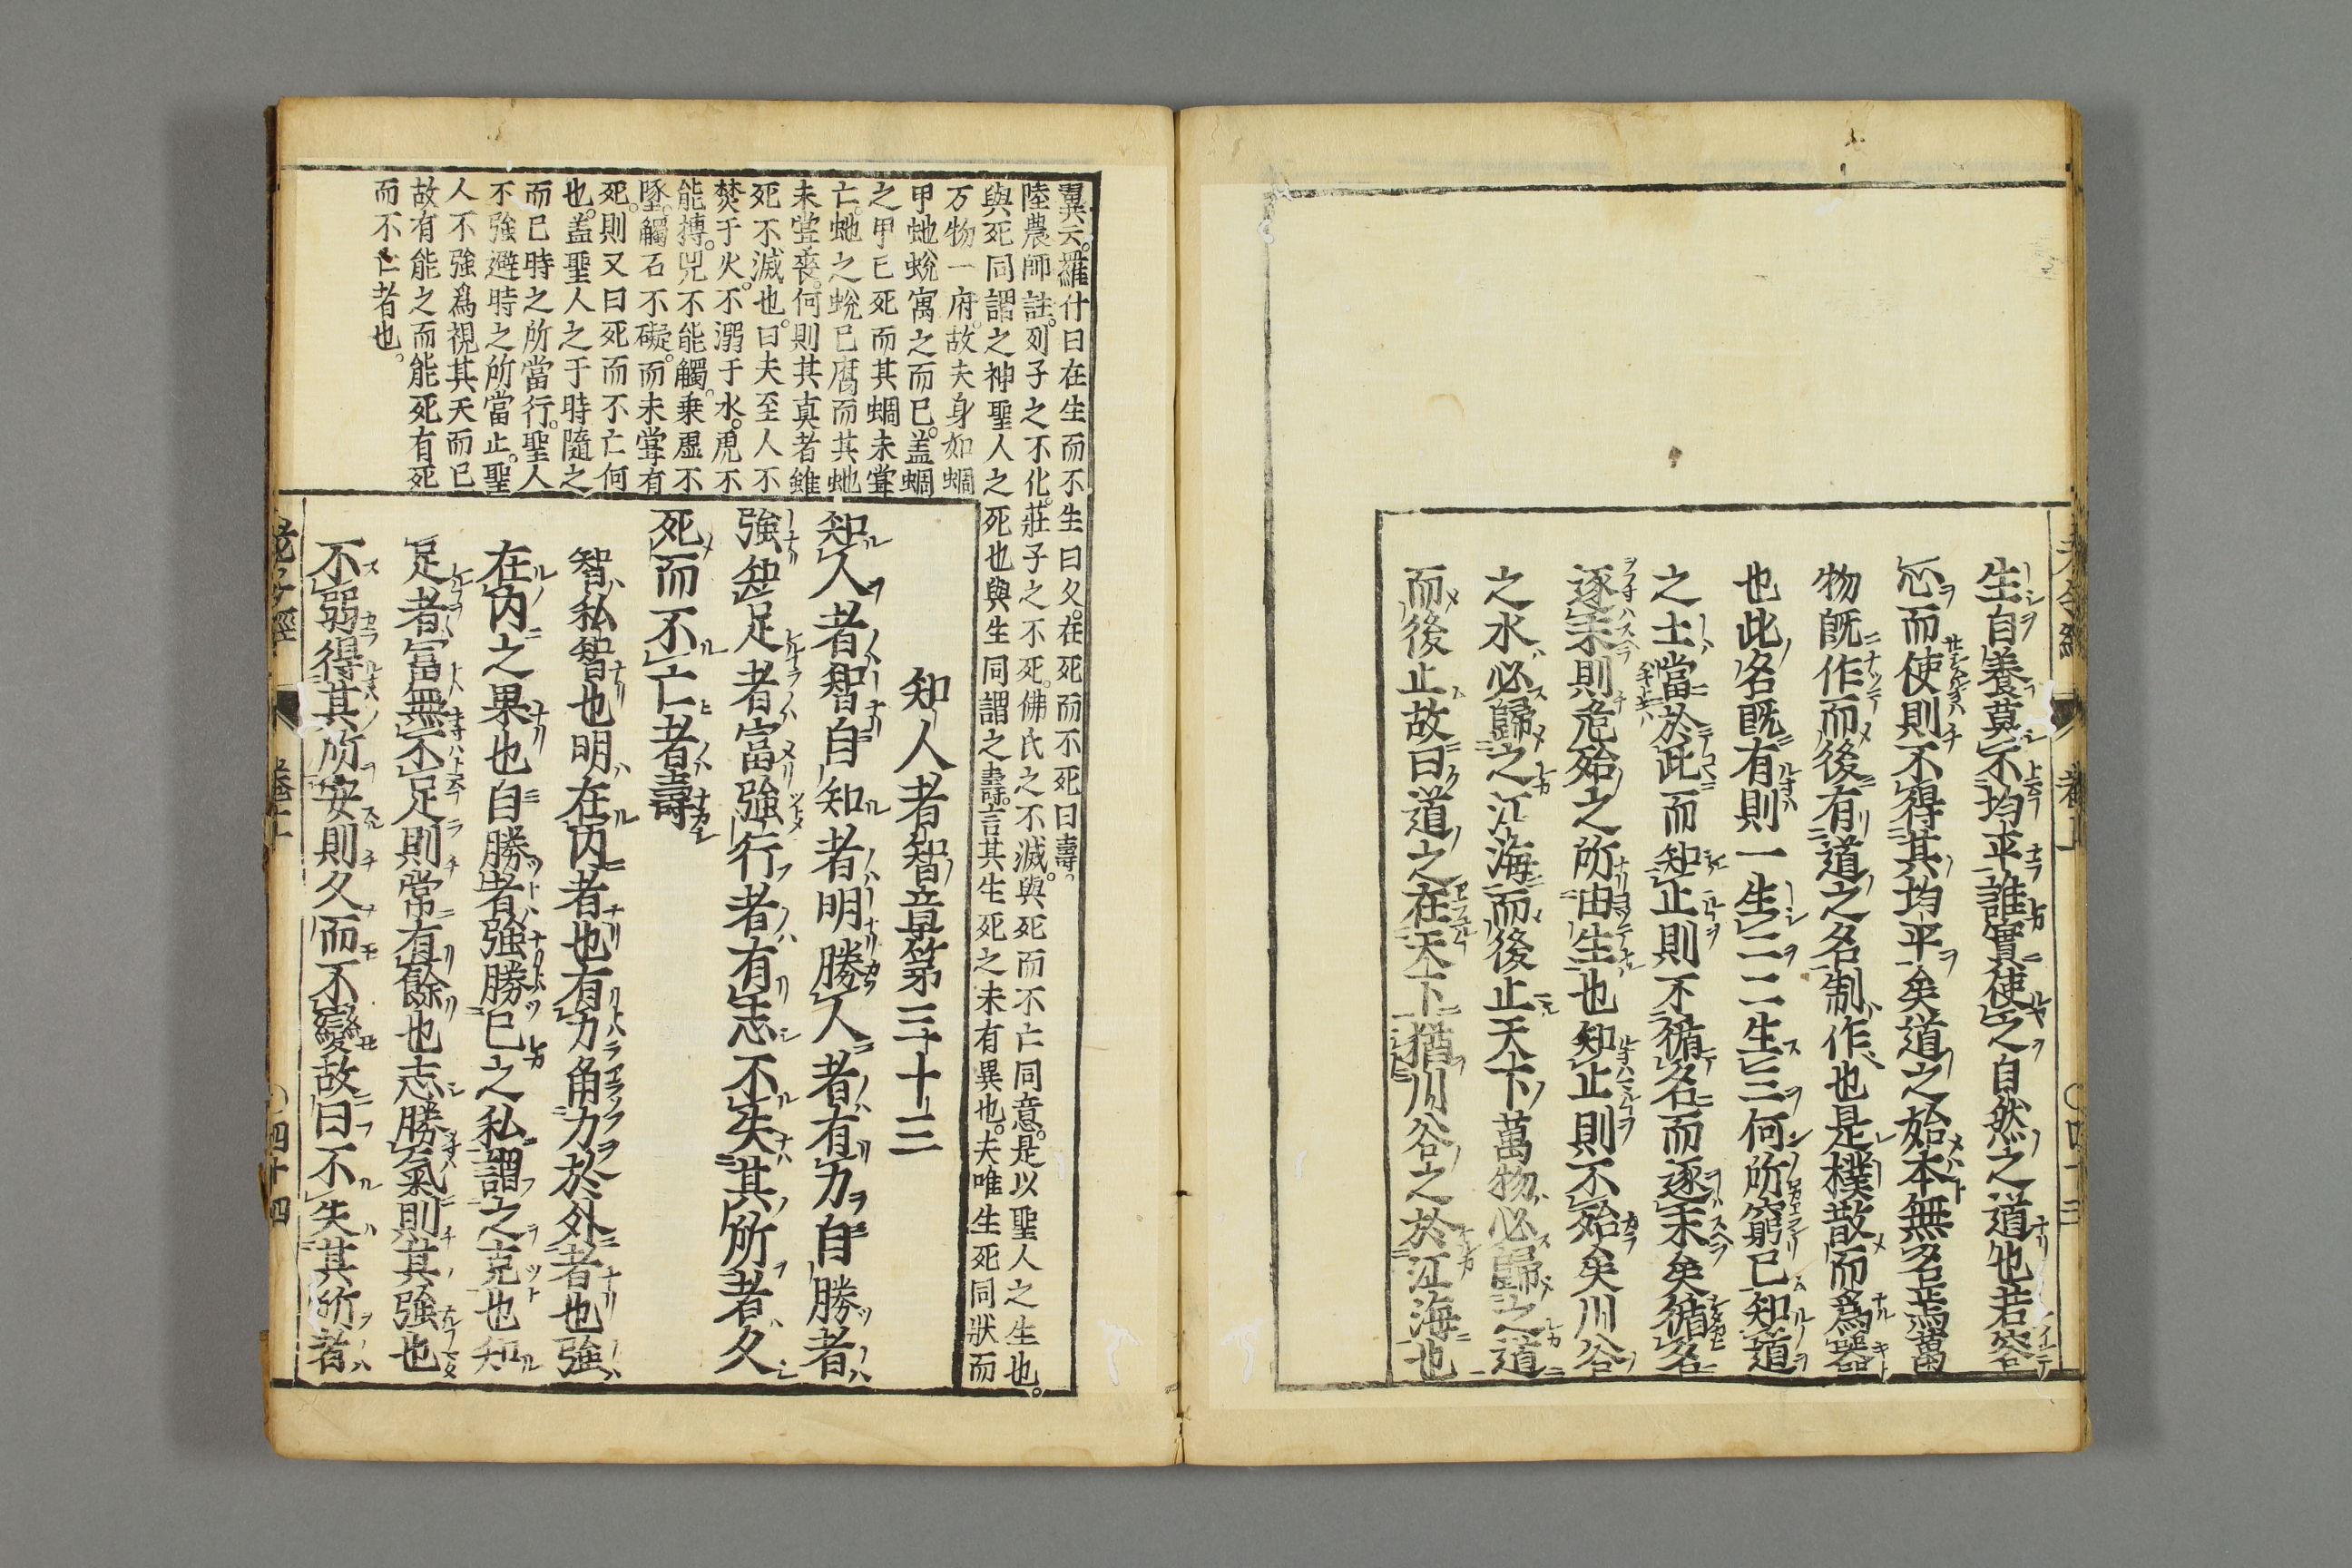 生自養莫不均平誰實使之自然之道也若容
心而使則不得其均平矣道之始本無名焉萬
物既作而後有道之名制作也是樸散而為器
也此名既有則一生二二生三何所窮已知道
之士當於此而知止則不循名而逐末矣循名
逐末則危殆之所由生也知止則不殆矣川谷
之水必歸之江海而後止天下萬物必歸之道
而後止故曰道之在天下猶川谷之於江海也
翼云。羅什曰在生而不生曰久。在死而不死曰壽。
陸農師註。列子之不化。莊子之不死。佛氏之不滅。與死而不亡同意。是以聖人之生也。
與死同謂之神聖人之死也與生同謂之壽。言其生死之未有異也。夫唯生死同狀而
万物一府。故夫身如蜩
甲虵蛻寓之而已。蓋蜩
之甲已死而其蜩未甞
亡。虵之蛻已腐而其虵
未甞喪。何則其真者雖
死不滅也。曰夫至人不
焚于火。不溺于水。虎不
能搏。兕不能觸。乗虛不
墜。觸石不礙。而未甞有
死。則又曰死而不亡何
也。蓋聖人之于時隨之
而已時之所當行。聖人
不強避時之所當止。聖
人不強為視其天而已
故有能之而能死有死
而不亡者也。
知人者智章第三十三
知人者智自知者明勝人者有力自勝者
強知足者富強行者有志不失其所者久
死而不亡者壽
智私智也明在內者也有力角力於外者也強
在內之果也自勝者強勝己之私謂之克也知
足者富無不足則常有餘也志勝氣則其強也
不弱得其所安則久而不變故曰不失其所者
老子經 卷上 〇四十四